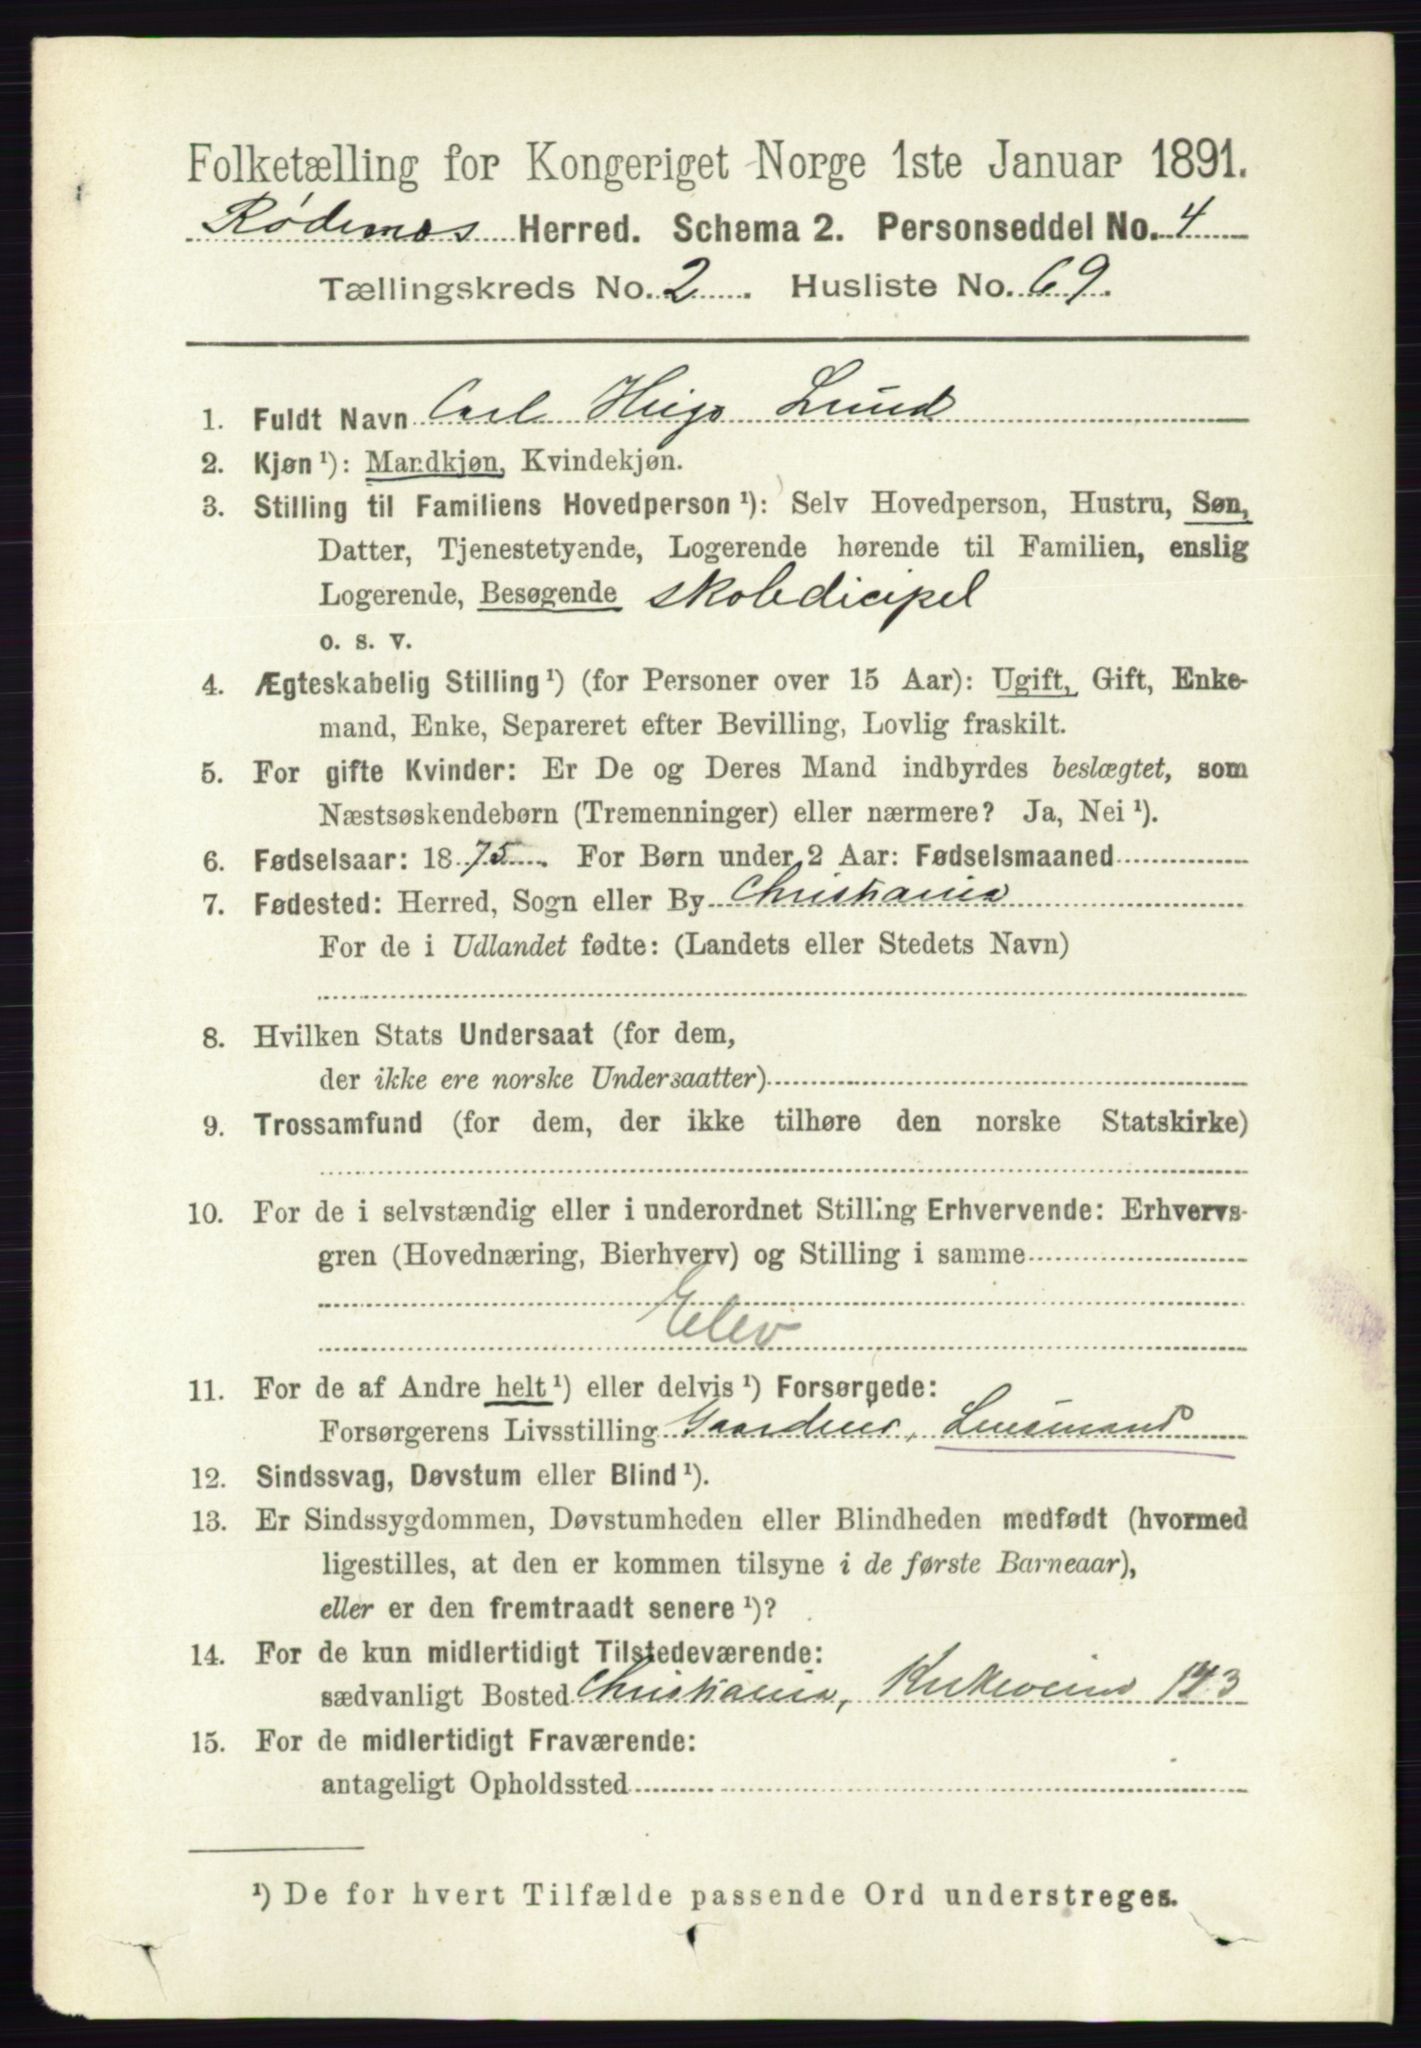 Folketælling for Kongeriget Norge 1ste Januar 1891.
Rødenæs Herred. Schema 2. Personseddel No. 4
Tællingskreds No. 2. Husliste No. 69.
1. Fuldt Navn Carl Hugo Lund
2. Kjøn ¹): Mandkjøn, Kvindekjøn.
3. Stilling til Familiens Hovedperson ¹): Selv Hovedperson, Hustru, Søn,
Datter, Tjenestetyende, Logerende hørende til Familien, enslig
Logerende, Besøgende skoledicipel
o. s. v.
4. Ægteskabelig Stilling ¹) (for Personer over 15 Aar): Ugift, Gift, Enke-
mand, Enke, Separeret efter Bevilling, Lovlig fraskilt.
5. For gifte Kvinder: Er De og Deres Mand indbyrdes beslægtet, som
Næstsøskendebørn (Tremenninger) eller nærmere? Ja, Nei ¹).
6. Fødselsaar: 1875. For Børn under 2 Aar: Fødselsmaaned
7. Fødested: Herred, Sogn eller By Christiania
For de i Udlandet fødte: (Landets eller Stedets Navn)
8. Hvilken Stats Undersaat (for dem,
der ikke ere norske Undersaatter)
9. Trossamfund (for dem, der ikke tilhøre den norske Statskirke)
10. For de i selvstændig eller i underordnet Stilling Erhvervende: Erhvervs-
gren (Hovednæring, Bierhverv) og Stilling i samme
Elev
11. For de af Andre helt ¹) eller delvis ¹) Forsørgede:
Forsørgerens Livsstilling Gaardeier, Lensmand
12. Sindssvag, Døvstum eller Blind ¹).
13. Er Sindssygdommen, Døvstumheden eller Blindheden medfødt (hvormed
ligestilles, at den er kommen tilsyne i de første Barneaar),
eller er den fremtraadt senere ¹)?
14. For de kun midlertidigt Tilstedeværende:
sædvanligt Bosted Christiania, Kirkeveien
15. For de midlertidigt Fraværende:
antageligt Opholdssted
¹) De for hvert Tilfælde passende Ord understreges.